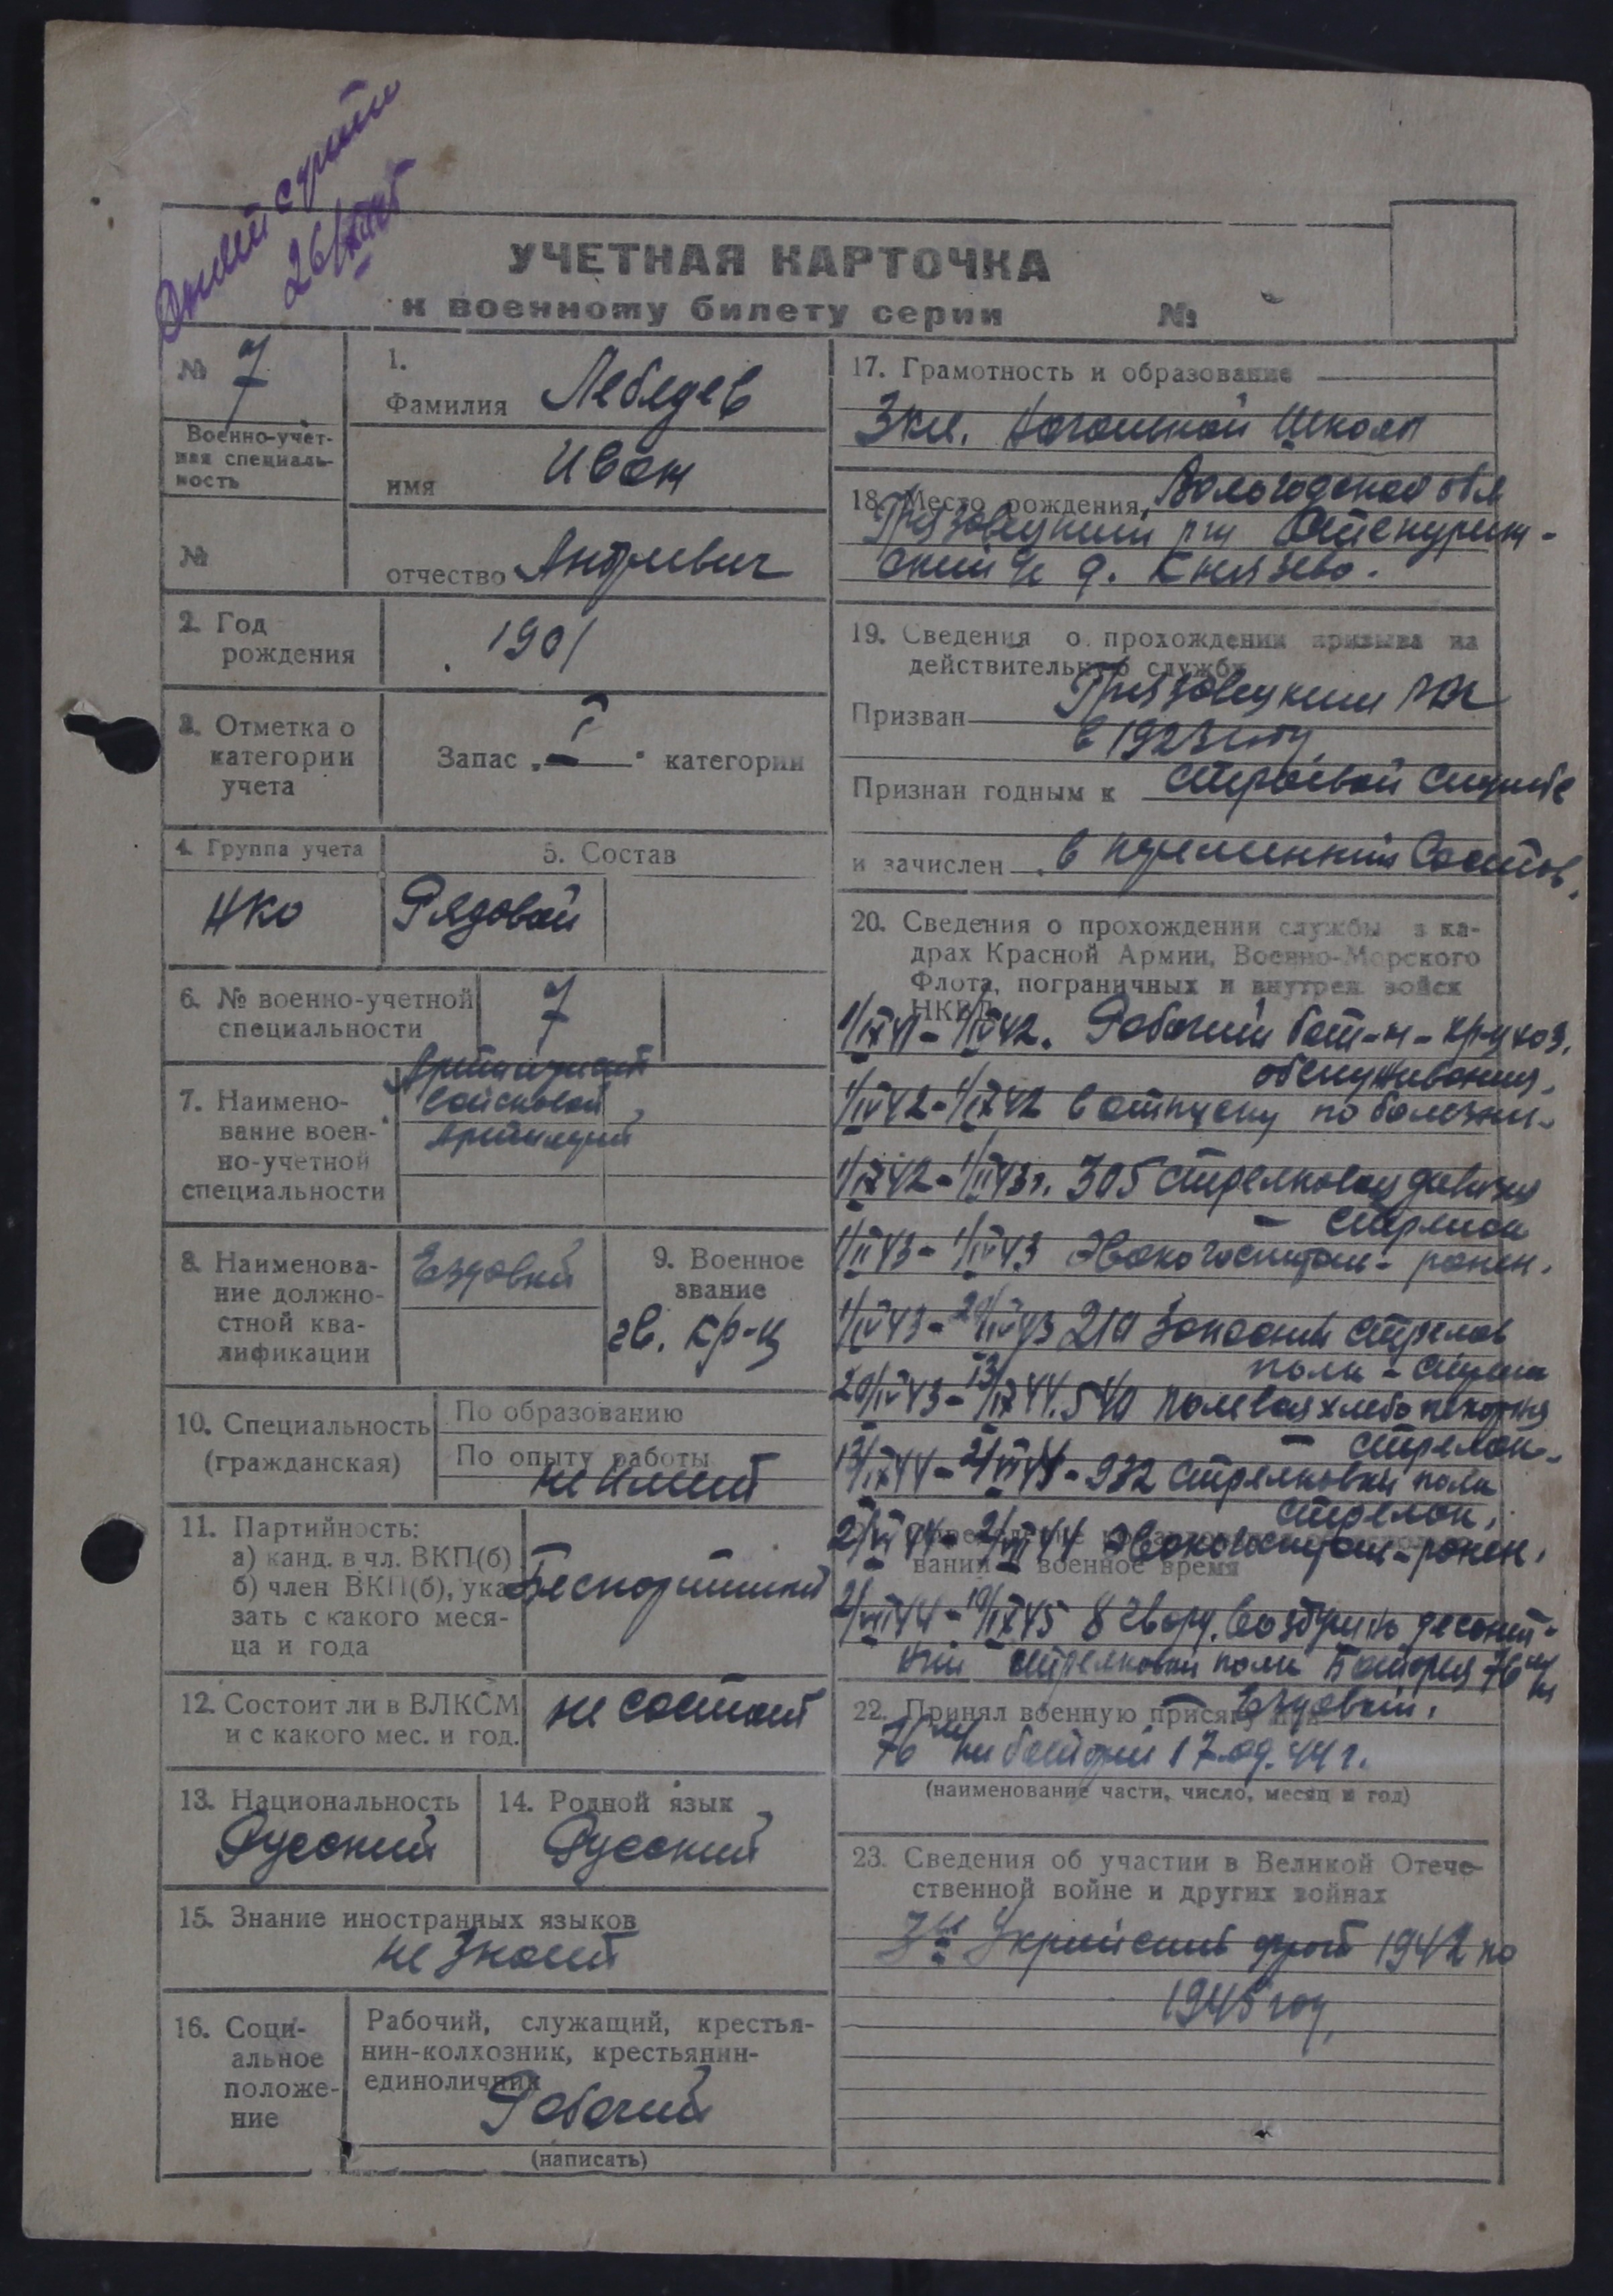 26/XII 45
УЧЕТНАЯ КАРТОЧКА
к военному билету серии №
№ 7
Военно-учет-
ная специаль-
ность
№
1.
Фамилия Лебедев
имя Иван
отчество Андреевич
2. Год
рождения
1901
3. Отметка о
категории
учета
Запас „I" категории
4. Группа учета
НКО
5. Состав
Рядовой
6. № военно-учетной
специальности
7
7. Наимено-
вание воен-
но-учетной
специальности
Артиллерист
войсковой
артилерии
8. Наименова-
ние должно-
стной ква-
лификации
Ездовый
9. Военное
звание
гв. кр-ц
10. Специальность
(гражданская)
По образованию
По опыту работы
не имеет
11. Партийность:
а) канд. в чл. ВКП(б)
б) член ВКП(б), ука-
зать с какого меся-
ца и года
Беспартийный
12. Состоит ли в ВЛКСМ
и с какого мес. и год.
не состоит
13. Национальность
Русский
14. Родной язык
Русский
15. Знание иностранных языков
не знает
16. Соци-
альное
положе-
ние
Рабочий, служащий, крестья-
нин-колхозник, крестьянин-
единоличник
Рабочий
(написать)
17. Грамотность и образование
3 кл. Начальной школы
18. Место рождения, Вологодской обл
Грязовецкий
д. Князево.
19. Сведения о прохождении призыва на
действительную службу
Призван Грязовецким РВК
в 1923 году
Признан годным к строевой службе
и зачислен в переменный состав.
20. Сведения о прохождении службы в ка-
драх Красной Армии, Военно-Морского
Флота, пограничных и внутрен. войск
НКВД
1/IX 41 - 1/IV 42. Рабочий бат-н - кр-ц хоз.
обслуживания.
1/IV 42 - 1/IX 42 в отпуску по болезни.
1/IX 42 - 1/II 43 г. 305 стрелковая дивизия
- стрелок
1/II 43 - 1/IV 43 Эвакогоспиталь - ранен.
1/IV 43 - 20/IV 43 210 Запасный стрелков
полк - стрелок
20/IV 43 - 13/IX 44. 540 полевая хлебопекарня
- стрелок.
932 стрелковый полк
стрелок.
Эвакогоспиталь - ранен.
вании военное время
8 гвард. воздушно десант-
ный стрелковый полк Батарея 76 мм
Ездовый.
22. Принял военную присягу при
76 мм батареи 17.09.44 г.
(наименование части, число, месяц и год)
23. Сведения об участии в Великой Отече-
ственной войне и других войнах
3й Украинский фронт 1942 по
1945 год.